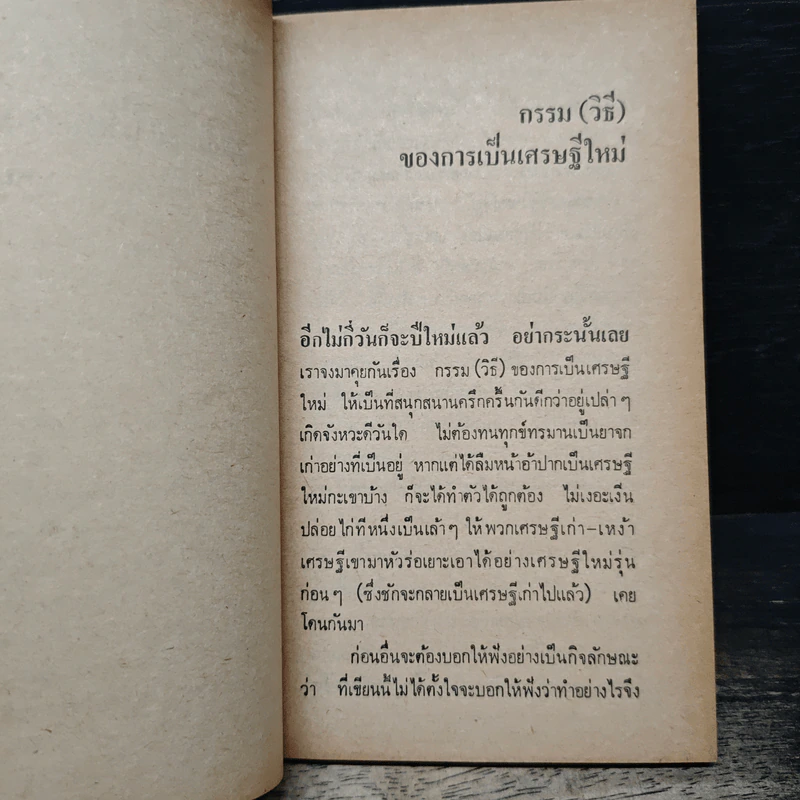 กรรม (วิธี)
ของการเป็นเศรษฐีใหม่
อีกไม่กี่วันก็จะปีใหม่แล้ว อย่ากระนั้นเลย
เราจงมาคุยกันเรื่อง กรรม (วิธี) ของการเป็นเศรษฐี
ใหม่ ให้เป็นที่สนุกสนานครึกครื้นกันดีกว่าอยู่เปล่า ๆ
เกิดจังหวะดีวันใด ไม่ต้องทนทุกข์ทรมานเป็นยาจก
เก่าอย่างที่เป็นอยู่ หากแต่ได้ลืมหน้าอ้าปากเป็นเศรษฐี
ใหม่กะเขาบ้าง ก็จะได้ทำตัวได้ถูกต้อง ไม่เงอะเงิ่น
ปล่อยไก่ทีหนึ่งเป็นเล้า ๆ ให้พวกเศรษฐีเก่า–เหง้า
เศรษฐีเขามาหัวร่อเยาะเอาได้อย่างเศรษฐีใหม่รุ่น
ก่อน ๆ (ซึ่งชักจะกลายเป็นเศรษฐีเก่าไปแล้ว) เคย
โดนกันมา
ก่อนอื่นจะต้องบอกให้ฟังอย่างเป็นกิจลักษณะ
ว่า ที่เขียนนี้ไม่ได้ตั้งใจจะบอกให้ฟังว่าทำอย่างไรจึง